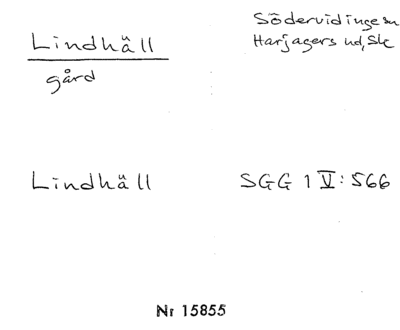 Lindhäll
gård
Södervidinge sn
Harjagers hd, Sk
Lindhäll
SGG 1 V: 566
Nr 15855